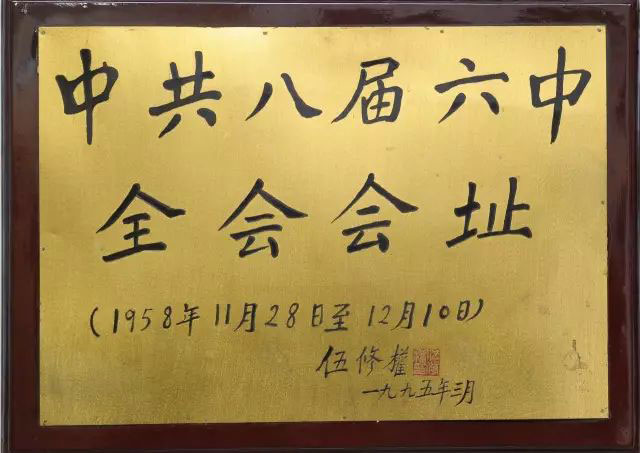 中共八届六中
全会会址
(1958年11月28日至12月10日)
伍修權
一九九五年三月